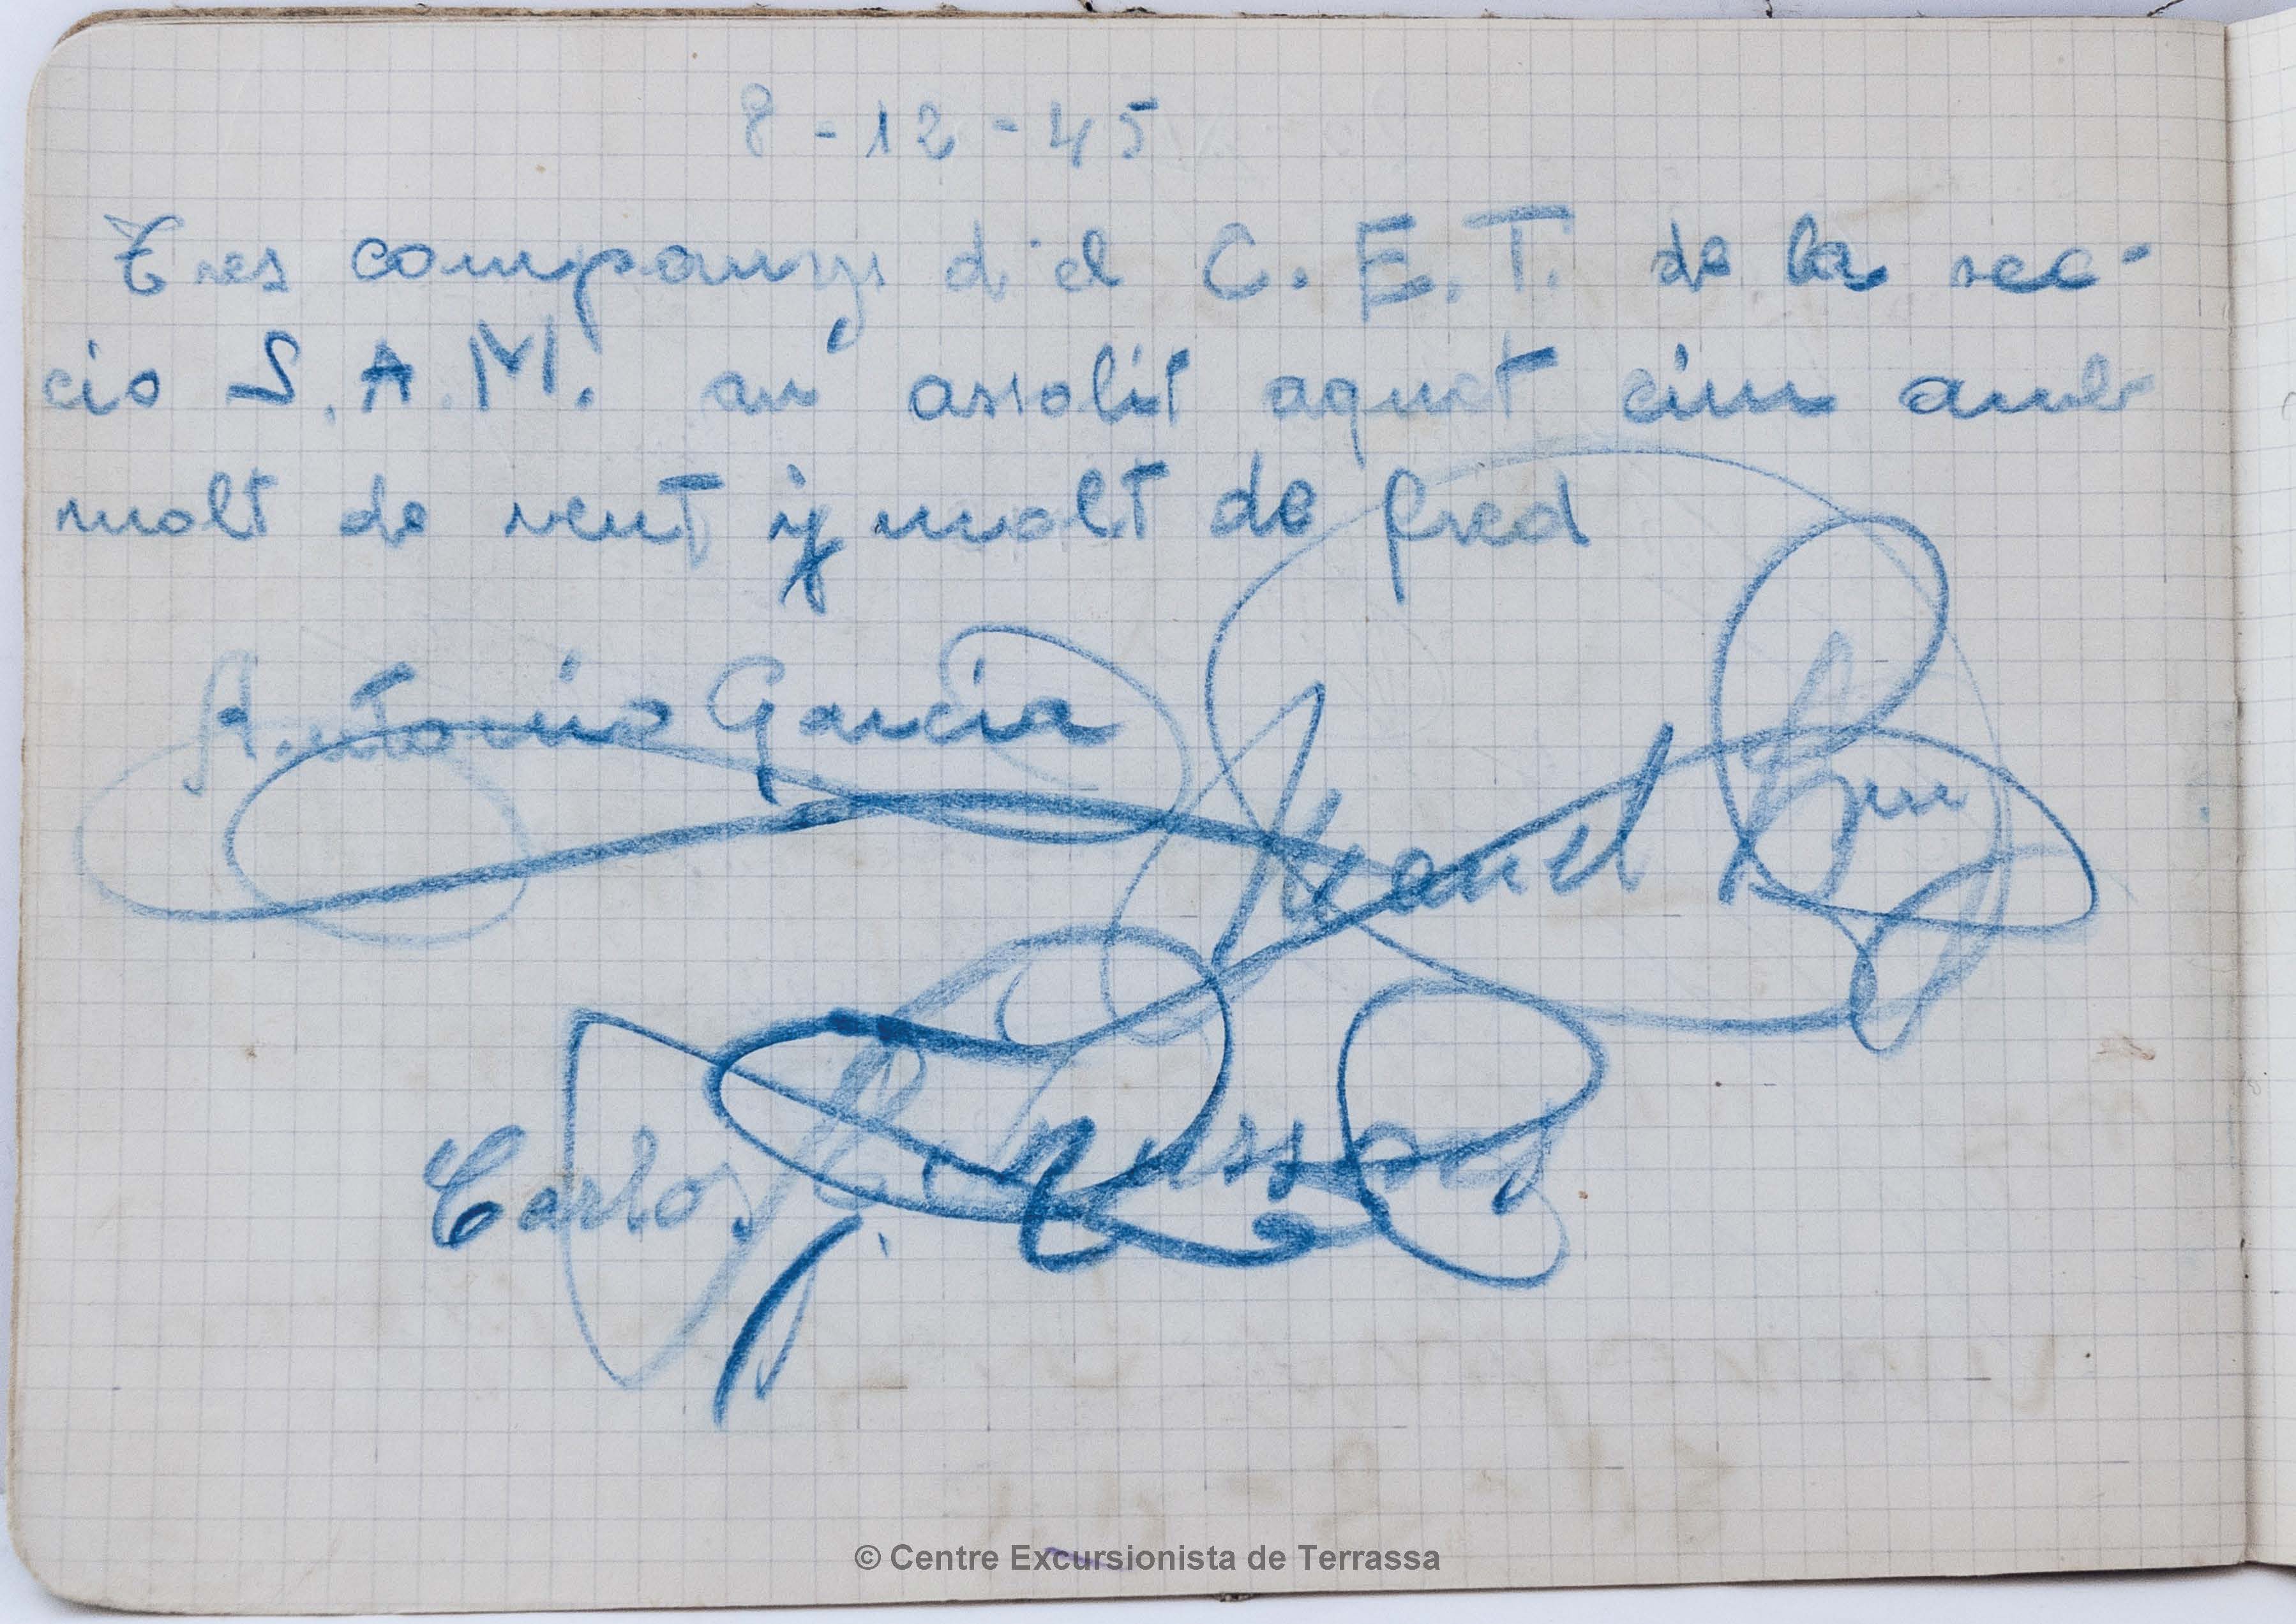 8-12-45
Tres companys d'el C.E.T. de la sec-
cio S.A.M. an assolit aquet cim amb
molt de vent y molt de fred
Antonio Garcia
Manel
Carlos
© Centre Excursionista de Terrassa